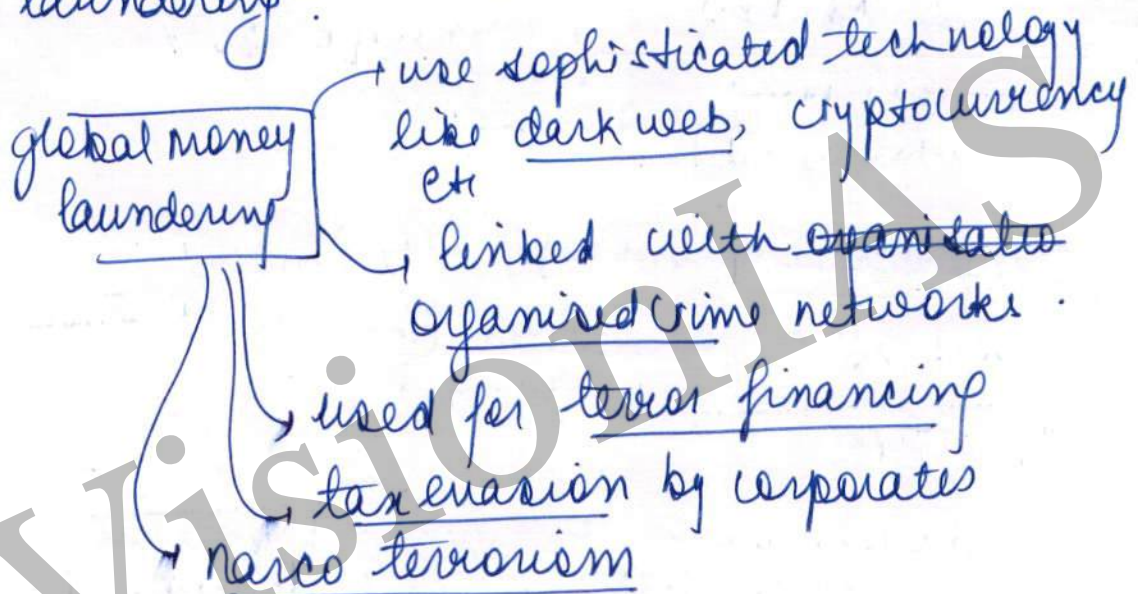 laundering.
global money
laundering
use sophisticated technology
like dark web, cryptocurrency
etc
linked with organisatio
organised crime networks.
used for terror financing
tax evasion by corporates
narco terrorism
VisionIAS